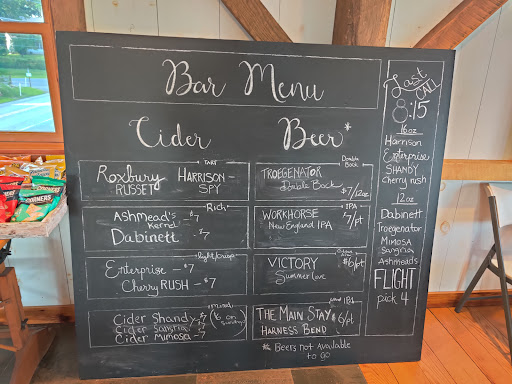 Bar Menu
Cider
TART
Roxbury HARRISON -
RUSSET SPY
Rich
ASHMEAD'S - $7
Kernel
Dabinett $7
light/crisp
Enterprise - $7
Cherry RUSH - $7
mixed
Cider Shandy - $7 ($6 on
Cider Sangria - $7 Sunday)
Cider Mimosa - 7
Beer*
Double
Bock
TROEGENATOR
Double Bock $7/12oz
IPA
WORKHORSE $7/pt
New England IPA
VICTORY $6/pt
Summer Love
IPA
THE MAIN STAY $6/pt
HARNESS BEND
* Beers not Available
to go
Last
CALL
8:15
16oz
Harrison
Enterprise
SHANDY
Cherry rush
12oz
Dabinett
Troegenator
Mimosa
Sangria
Ashmeads
FLIGHT
pick 4
CORNERS